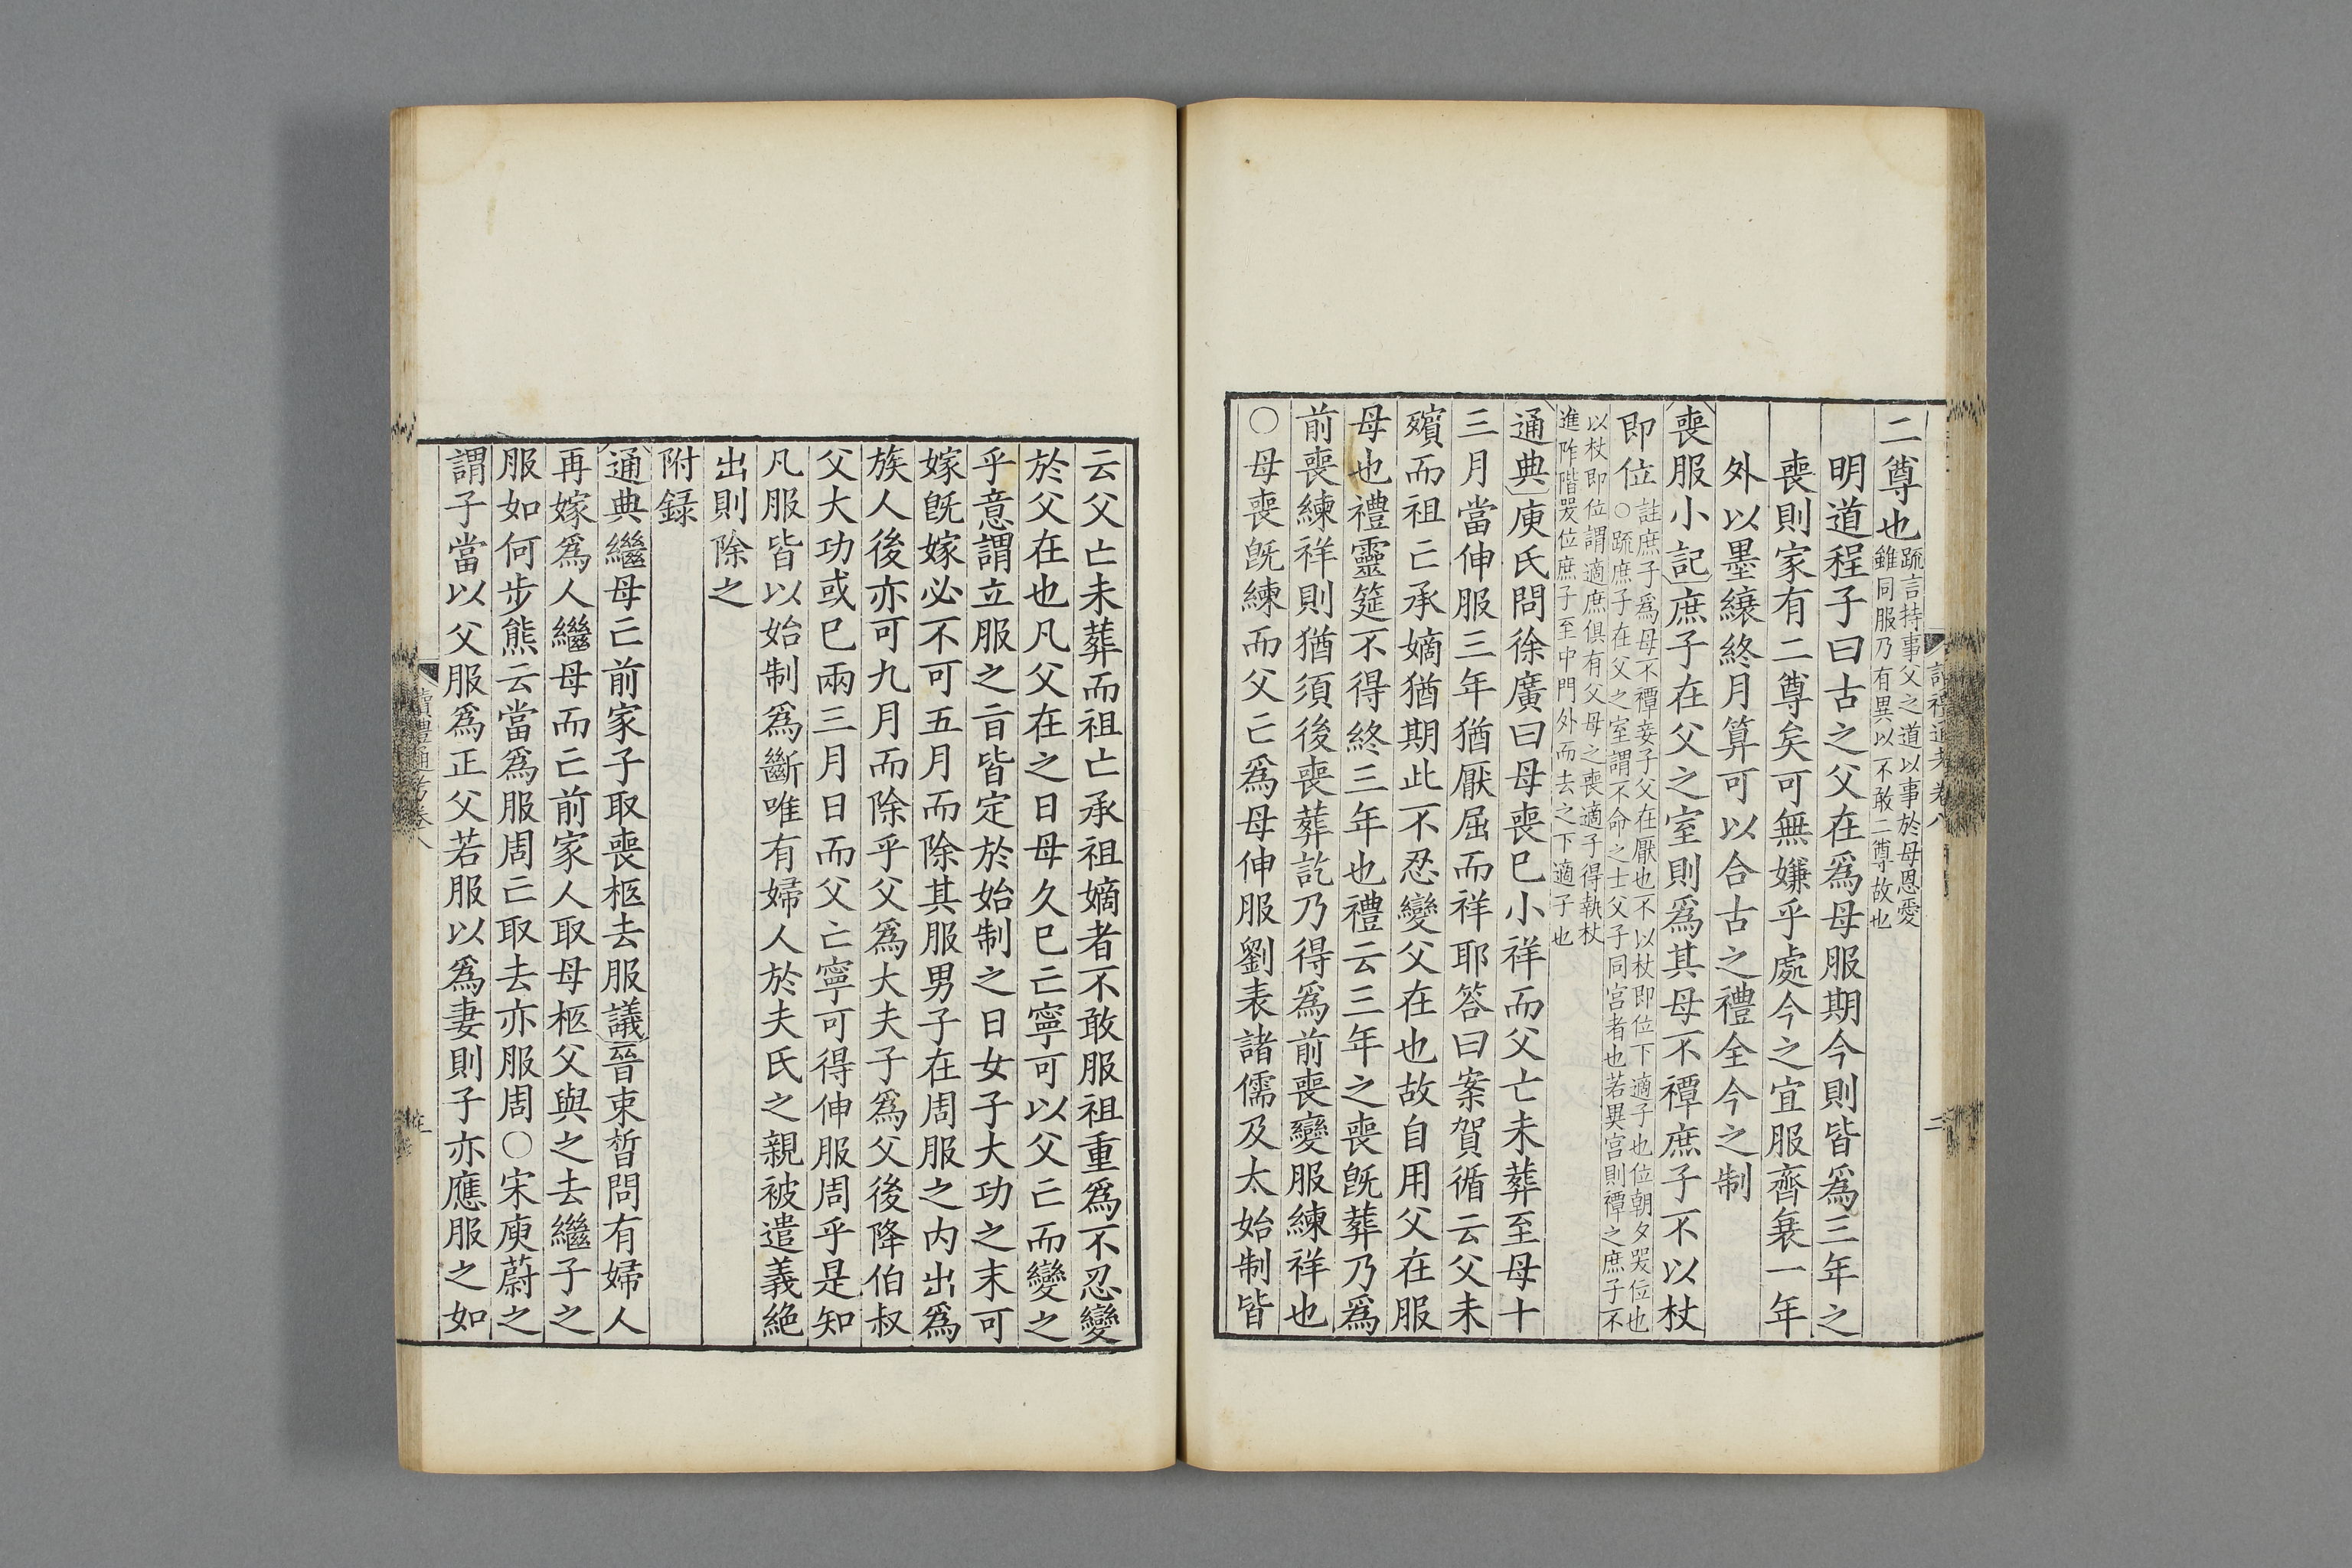 二尊也疏言持事父之道以事於母恩愛
雖同服乃有異以不敢二尊故也
明道程子曰古之父在爲母服期今則皆爲三年之
喪則家有二尊矣可無嫌乎處今之宜服齊衰一年
外以墨縗終月算可以合古之禮全今之制
喪服小記庶子在父之室則爲其母不禫庶子不以杖
即位註庶子爲母不禫妾子父在厭也不以杖即位下適子也位朝夕哭位也
○疏庶子在父之室謂不命之士父子同宮者也若異宮則禫之庶子不
以杖即位謂適庶俱有父母之喪適子得執杖
進阼階哭位庶子至中門外而去之下適子也
通典庾氏問徐廣曰母喪巳小祥而父亡未葬至母十
三月當伸服三年猶厭屈而祥耶答曰案賀循云父未
殯而祖亡承嫡猶期此不忍變父在也故自用父在服
母也禮靈筵不得終三年也禮云三年之喪旣葬乃爲
前喪練祥則猶須後喪葬訖乃得爲前喪變服練祥也
○母喪旣練而父亡爲母伸服劉表諸儒及太始制皆
云父亡未葬而祖亡承祖嫡者不敢服祖重爲不忍變
於父在也凡父在之日母久巳亡寧可以父亡而變之
乎意謂立服之㫖皆定於始制之日女子大功之末可
嫁旣嫁必不可五月而除其服男子在周服之内出爲
族人後亦可九月而除乎父爲大夫子爲父後降伯叔
父大功或巳兩三月日而父亡寧可得伸服周乎是知
凡服皆以始制爲斷唯有婦人於夫氏之親被遣義絶
出則除之
附録
通典繼母亡前家子取喪柩去服議晉束晳問有婦人
再嫁爲人繼母而亡前家人取母柩父與之去繼子之
服如何步熊云當爲服周亡取去亦服周○宋庾蔚之
謂子當以父服爲正父若服以爲妻則子亦應服之如
讀禮通考卷八